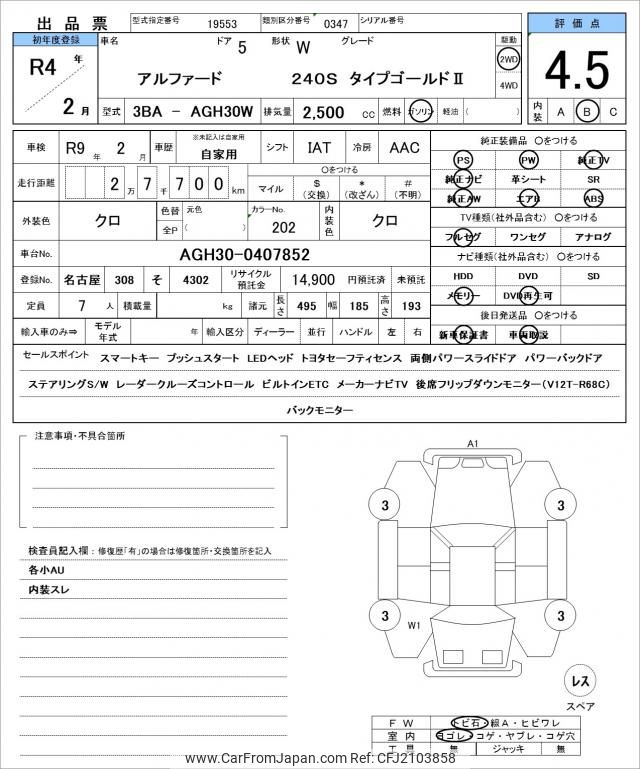 出品票 型式指定番号 19553 類別区分番号 0347 シリアル番号
評価点
4.5
内装 A B C
初年度登録
R4 年
2 月
車名 ドア 5 形状 W グレード
アルファード 240S タイプゴールドⅡ
駆動
2WD
4WD
型式 3BA － AGH30W 排気量 2,500 cc 燃料 ガソリン 軽油 ( )
車検 R9 年 2 月 車歴 ※未記入は自家用 自家用 シフト IAT 冷房 AAC
走行距離 2 万 7 千 7 0 0 km
〇をつける
マイル $ (交換) * (改ざん) # (不明)
外装色 クロ 色替 元色 全P ( ) カラーNo. 202 内装色 クロ
車台No. AGH30-0407852
登録No. 名古屋 308 そ 4302 リサイクル預託金 14,900 円預託済 未預託
定員 7 人 積載量 kg 諸元 長さ 495 幅 185 高さ 193
輸入車のみ⇒ モデル年式 年 輸入区分 ディーラー 並行 ハンドル 左 右
純正装備品 〇をつける
PS PW 純正TV
純正ナビ 革シート SR
純正AW エアB ABS
TV種類(社外品含む) 〇をつける
フルセグ ワンセグ アナログ
ナビ種類(社外品含む) 〇をつける
HDD DVD SD
メモリー DVD再生可
後日発送品 〇をつける
新車保証書 車両取説
セールスポイント スマートキー プッシュスタート LEDヘッド トヨタセーフティセンス 両側パワースライドドア パワーバックドア
ステアリングS/W レーダークルーズコントロール ビルトインETC メーカーナビTV 後席フリップダウンモニター(V12T-R68C)
バックモニター
注意事項・不具合箇所
検査員記入欄：修復歴「有」の場合は修復箇所・交換箇所を記入
各小AU
内装スレ
A1
3 3
3 3
W1
レス
スペア
FW トビ石・線A・ヒビワレ
室内 ヨゴレ・コゲ・ヤブレ・コゲ穴
工具 無 ジャッキ 無
www.CarFromJapan.com Ref: CFJ2103858